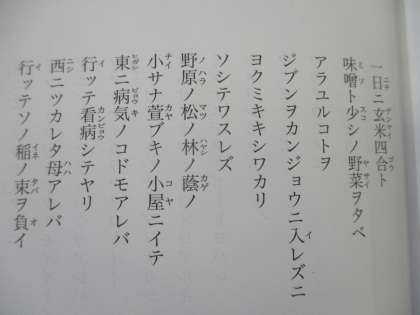 一日ニ玄米四合ト
味噌ト少シノ野菜ヲタベ
アラユルコトヲ
ジブンヲカンジョウニ入レズニ
ヨクミキキシワカリ
ソシテワスレズ
野原ノ松ノ林ノ蔭ノ
小サナ萱ブキノ小屋ニイテ
東ニ病気ノコドモアレバ
行ッテ看病シテヤリ
西ニツカレタ母アレバ
行ッテソノ稲ノ束ヲ負イ